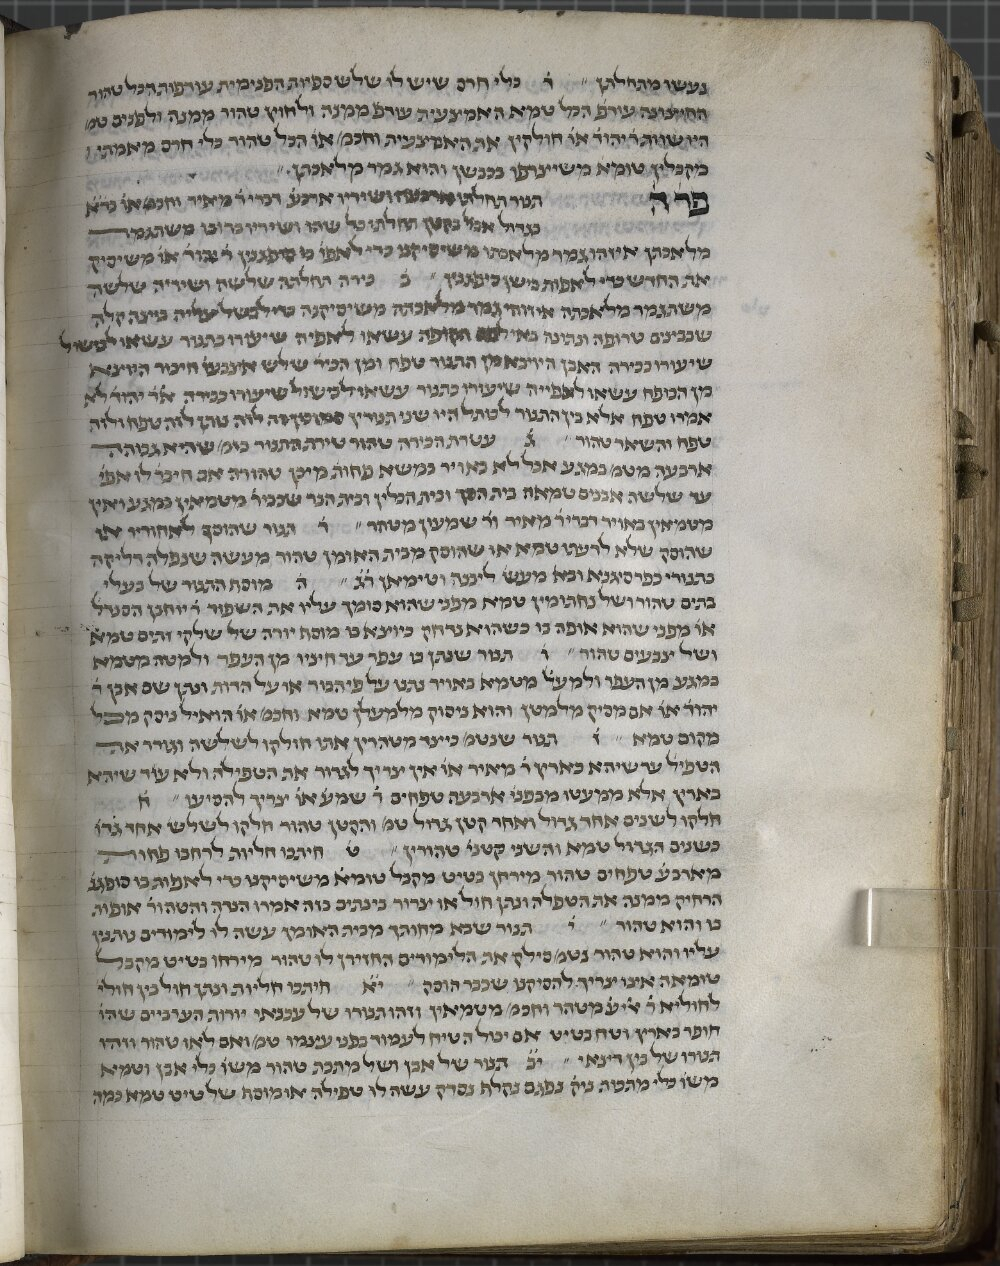 נעשו מתחלתן ״ ד כלי חרס שיש לו שלש ספיות הפנימית עודפות הכל טהור
החיצונה עודפ׳ הכל טמא האמיצעית עודפ׳ ממנה ולחוץ טהור ממנה ולפנים טמ׳
היו שוות ר׳ יהוד׳ או׳ חולקין את האמיצעית וחכמ׳ או׳ הכל טהור כלי חרס מאמתי
מקבלין טומא משייצרפו בכבשן והוא גמר מלאכתן ״
פר ה תנור תחלתו ארבעה ושיריו ארבע׳ דברי ר׳ מאיר וחכמ׳ או׳ במ׳א
בגדול אבל בקטן תחלתו כל שהו ושיריו ברובו משתגמר
מלאכתן איזהו גמר מלאכתו משיסיקנו כדי לאפו׳ בו סופגנין ר׳ יהוד׳ או׳ משיסיק
את החדש כדי לאפות בישן סופגנין ״ ב כירה תחלתה שלשה ושיריה שלשה
משתגמר מלאכתה איזוהי גמר מלאכתה משיסיקנה כדי לבשל עליה ביצה קלה
שבביצים טרופה ונתונה באילפס הכופח עשאו לאפיה שיעורו כתנור עשאו לבישול
שיעורו ככירה האבן היוצא מן התנור טפח ומן הכיר׳ שלש אצבעו׳ חיבור היוצא
מן הכופח עשאו לאפייה שיעורו כתנור עשאו לבישול שיעורו ככירה א׳ר׳ יהוד׳ לא
אמרו טפח אלא בין התנור לכותל היו שני תנורין סמוכין זה לזה נותן לזה טפח ולזה
טפח והשאר טהור ״ ג עטרת הכירה טהור טירת התנור בזמ׳ שהיא גבוהה
ארבעה מטמ׳ במגע אבל לא באויר במשא פחות מיכן טהורה אם חיבר׳ לו אפי׳
על שלשה אבנים טמאה בית הפך ובית התבלין ובית הנר שבכיר׳ מטמאין במגע ואין
מטמאין באויר דברי ר׳ מאיר ור׳ שמעון מטהר ״ ד תנור שהוסק לאחוריו או
שהוסק שלא לדעתו טמא או שהוסק מבית האומן טהור מעשה שנפלה דליקה
בתנורי כפר סיגנא ובא מעש׳ ליבנה וטימאן ר׳ג׳ ״ ה מוסף התנור של בעלי
בתים טהור ושל נחתומין טמא מפני שהוא סומך עליו את השפוד ר׳ יוחנן הסנדל׳
או׳ מפני שהוא אופה בו כשהוא נדחק כיוצא בו מוסף יורה של שלקי זתים טמא
ושל יצבעים טהור ״ ו תנור שנתן בו עפר עד חיציו מן העפר ולמטה מטמא
במגע מן העפר ולמעל׳ מטמא באויר נתנו על פי הבור או על הדות ונתן שם אבן ר׳
יהוד׳ או׳ אם מסיק מלמטן והוא ניסוק מלמעלן טמא וחכמ׳ או׳ הואיל וניסק מכל
מקום טמא ״ ז תנור שנטמ׳ כיצד מטהרין אתו חולקו לשלשה וגורר את
הטפיל׳ עד שיהא בארץ ר׳ מאיר או׳ אין צריך לגרור את הטפילה ולא עוד שיהא
בארץ אלא ממעטו מבפני׳ ארבעה טפחים ר׳ שמע׳ או׳ צריך להסיעו ״ ח
חלקו לשנים אחד גדול ואחד קטן גדול טמ׳ והקטן טהור חלקו לשלש אחד גדו׳
כשנים הגדול טמא והשני קטני׳ טהורין ״ ט חיתכו חליות לרחבו פחות
מארבע׳ טפחים טהור מירחן בטיט מקבל טומא׳ משיסיקנו כדי לאפות בו סופגנ׳
הרחיק ממנה את הטפלה ונתן חול או צרור בינתים בזה אמרו הנדה והטהור׳ אופות
בו והוא טהור ״ י תנור שבא מחותך מבית האומן עשה לו לימודים נותנן
עליו והוא טהור נטמ׳ סילק את הלימודים החזירן לו טהור מירחו בטיט מקבל
טומאה אינו צריך להסיקנו שכבר הוסק ״ י׳א חיתכו חליות ונתן חול בין חולי׳
לחוליא ר׳ א׳יע׳ מטהר וחכמ׳ מטמאין וזהו תנורו של עכנאי יורות הערביים שהו׳
חופר בארץ וטח בטיט אם יכול הטיח לעמוד בפני עצמו טמ׳ ואם לאו טהור וזהו
תנורו של בין דינאי ״ י׳ב תנור של אבן ושל מתכת טהור משו׳ כלי אבן וטמא
משו׳ כלי מתכות ניק׳ נפגם נקלח נסדק עשה לו טפילה או מוסף של טיט טמא כמה